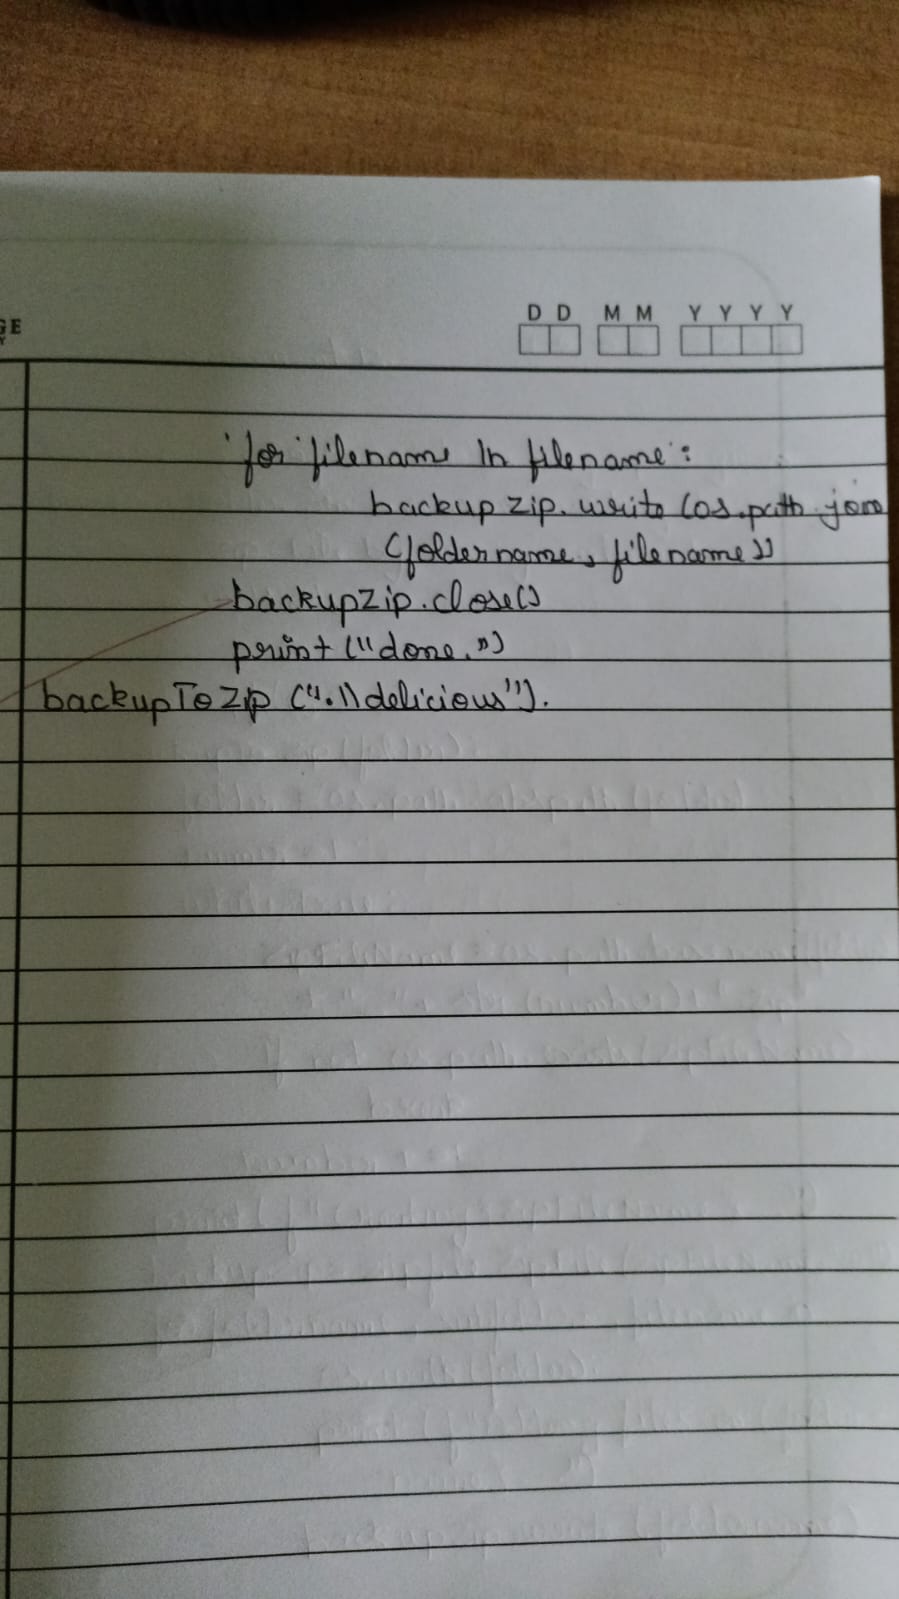 GE
D D M M Y Y Y Y
for filename in filename:
backupzip.write (os.path.join
(foldername, filename))
backupzip.close()
print ("done.")
backupToZip (".\\delicious").